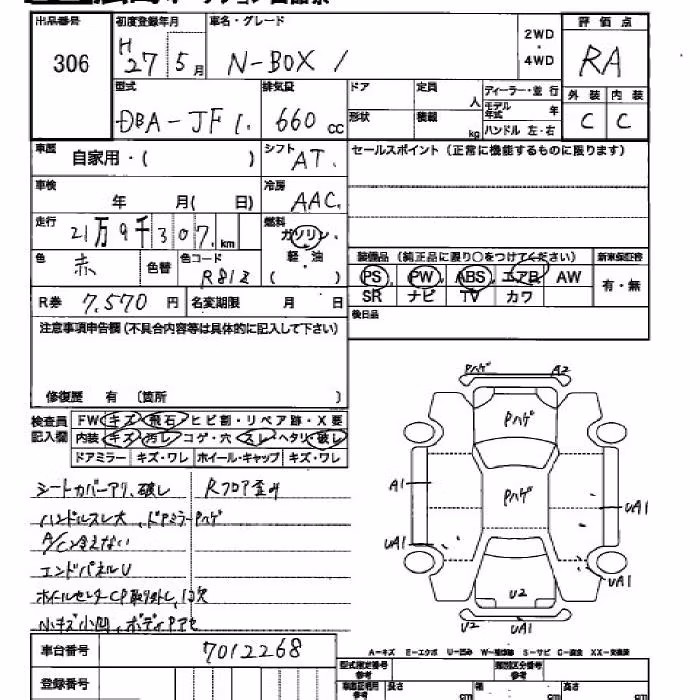 出品番号 初度登録年月 車名・グレード 評価点
306 H27 5月 N-BOX / 2WD・4WD RA
型式 排気量 ドア 定員 人 ディーラー・並行 外装 内装
DBA-JF1. 660cc 形状 積載 kg モデル年式 年 ハンドル 左・右 C C
車歴 自家用・( ) シフト AT. セールスポイント(正常に機能するものに限ります)
車検 年 月( 日) 冷房 AAC.
走行 21万9千307.km 燃料 ガソリン・軽・油 ( )
色 赤 色替 色コード R812
装備品 (純正品に限り○をつけてください) 新車保証書
PS PW ABS エアB AW 有・無
SR ナビ TV カワ
R券 7,570円 名変期限 月 日 後日品
注意事項申告欄(不具合内容等は具体的に記入して下さい)
修復歴 有 (箇所 )
検査員記入欄 FW キズ・飛石・ヒビ割・リペア跡・X要
内装 キズ・汚レ・コゲ・穴・スレ・ヘタリ・破レ
ドアミラー キズ・ワレ ホイール・キャップ キズ・ワレ
シートカバーアリ、破レ Rフロア歪み
ハンドルスレ大、ドアミラーPハゲ
A/C冷えない
エンドパネルU
ホイルセンターCP取外し、1コ欠
小キズ小凹、ボディPアセ
Pハゲ A2
Pハゲ
A1 Pハゲ UA1
UA1 UA1
U2
U2 UA1
車台番号 7012268
A-キズ E-エクボ U-凹み W-補修跡 S-サビ C-腐食 XX-交換済
登録番号 型式指定番号 類別区分番号
長さ cm 幅 cm 高さ cm